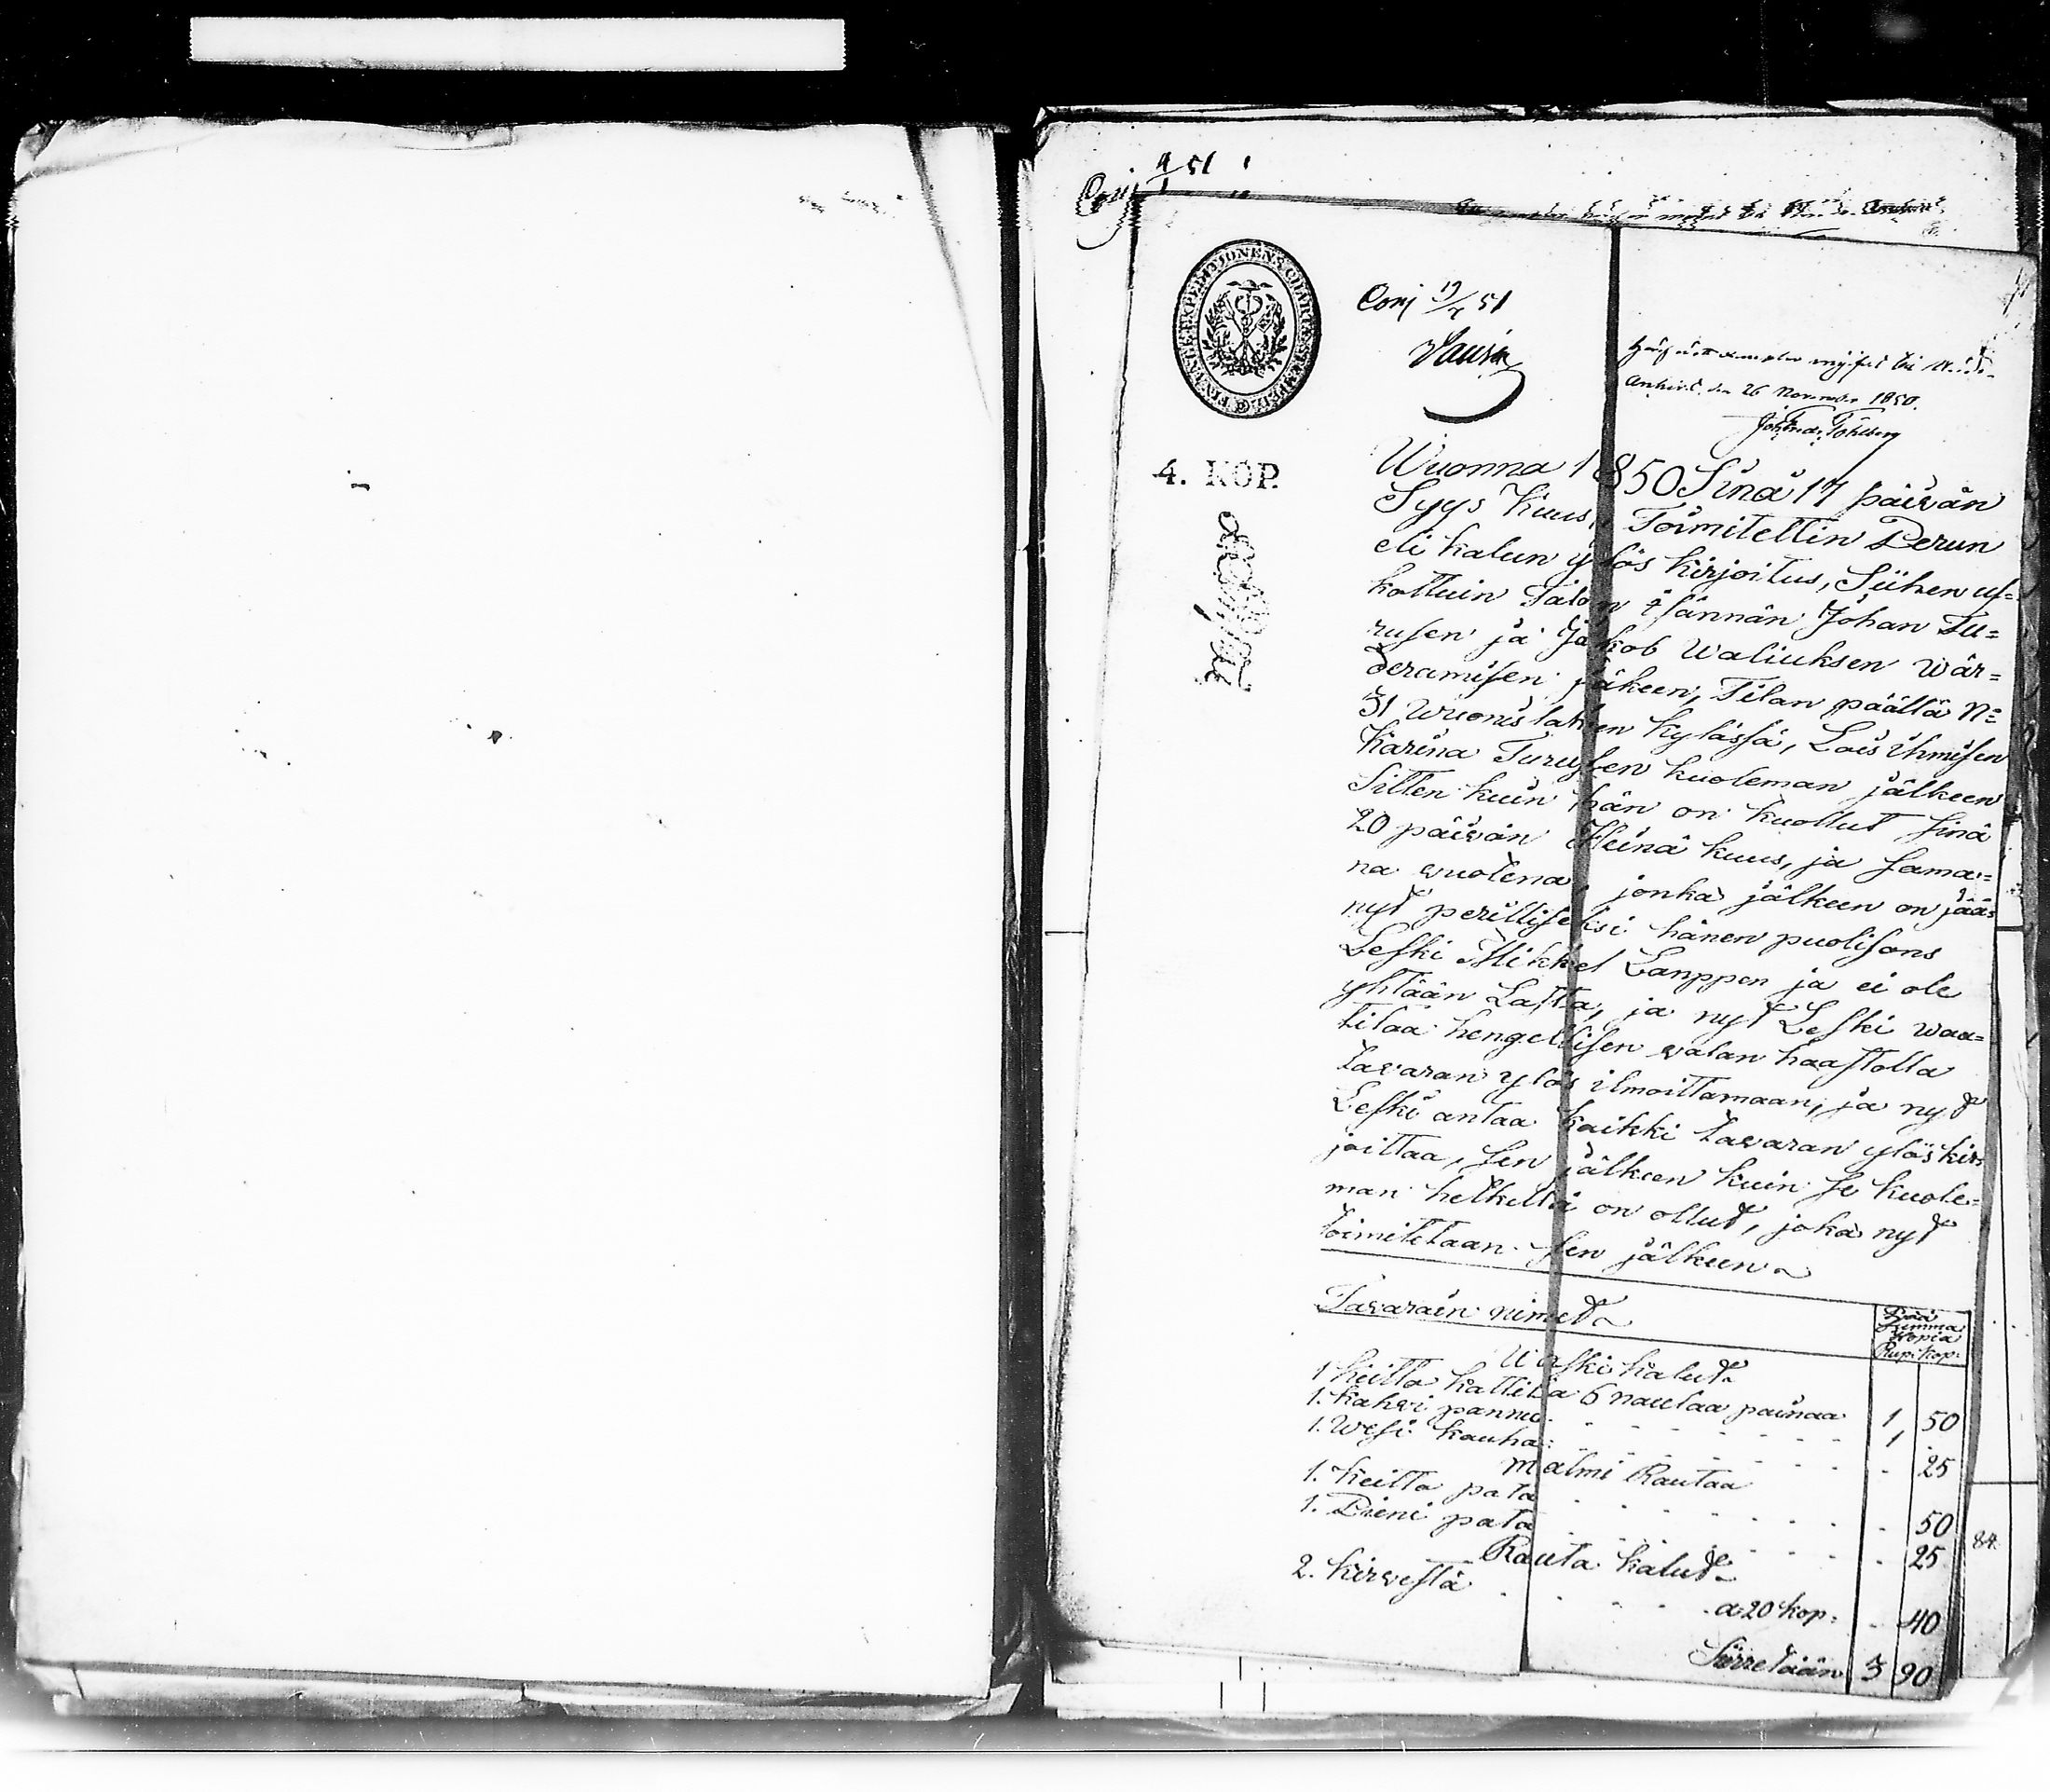 4/1 51
Conj 19/7 51
4. KOP.
arkivet den 26 November 1850.
Wuonna 1850 Sinä 17 päivän
Syys Kuus, Toimitettin Perun
eli kalun ylös kirjoitus, Siihen us=
kottuin Talon isännän Johan Tu=
rusen ja Jakob Waliuksen wär=
deramisen jäkeen, Tilan päällä No
31 Wuonislahen kylässä, Lois ihmisen
Karina Turusen kuoleman jälkeen
Sitten kuin hän on kuollut sinä
20 päivän Heinä kuus, ja sama=
na vuotena, jonka jälkeen on jää=
nyt perilliseksi hänen puolisons
Leski Mikkel Lanppen ja ei ole
yhtään Lasta, ja nyt Leski waa=
titaa hengellisen valan haastolla
tavaran ylös ilmoittamaan, ja nyt
Leski antaa kaikki tavaran ylöskir=
joittaa, sen jälkeen kuin se kuole=
man hetkellä on ollut, joka nyt
toimitetaan sen jälkeen
Tavarain nimet Pää Summa Hopia Rup: Kop:
Waski kalut
1 keitto kattila 6 naulaa painaa 1 50
1. kahvi pannu 1 .
1. Wesi kauha . 25
Malmi Rautaa
1. keitto pata . 50
1. Pieni pata . 25
Rauta kalut
2. kirvestä a 20 kop: . 40
Siirretään 3 90
84